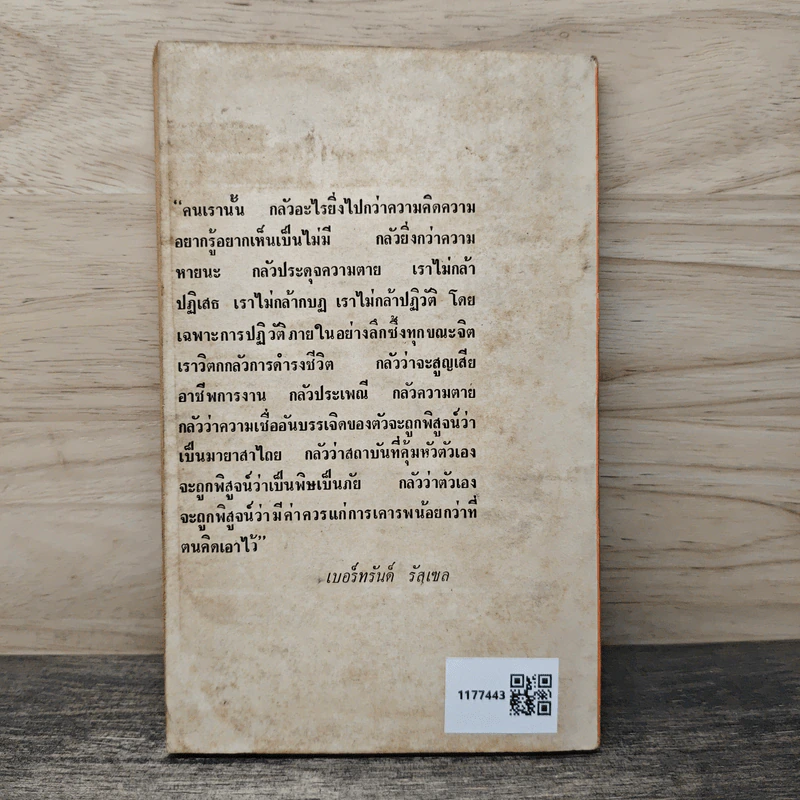 “คนเรานั้น กลัวอะไรยิ่งไปกว่าความคิดความ
อยากรู้อยากเห็นเป็นไม่มี กลัวยิ่งกว่าความ
หายนะ กลัวประดุจความตาย เราไม่กล้า
ปฏิเสธ เราไม่กล้ากบฏ เราไม่กล้าปฏิวัติ โดย
เฉพาะการปฏิวัติภายในอย่างลึกซึ้งทุกขณะจิต
เราวิตกกลัวการดำรงชีวิต กลัวว่าจะสูญเสีย
อาชีพการงาน กลัวประเพณี กลัวความตาย
กลัวว่าความเชื่ออันบรรเจิดของตัวจะถูกพิสูจน์ว่า
เป็นมายาสาไถย กลัวว่าสถาบันที่คุ้มหัวตัวเอง
จะถูกพิสูจน์ว่าเป็นพิษเป็นภัย กลัวว่าตัวเอง
จะถูกพิสูจน์ว่ามีค่าควรแก่การเคารพน้อยกว่าที่
ตนคิดเอาไว้”
เบอร์ทรันด์ รัสเซล
1177443